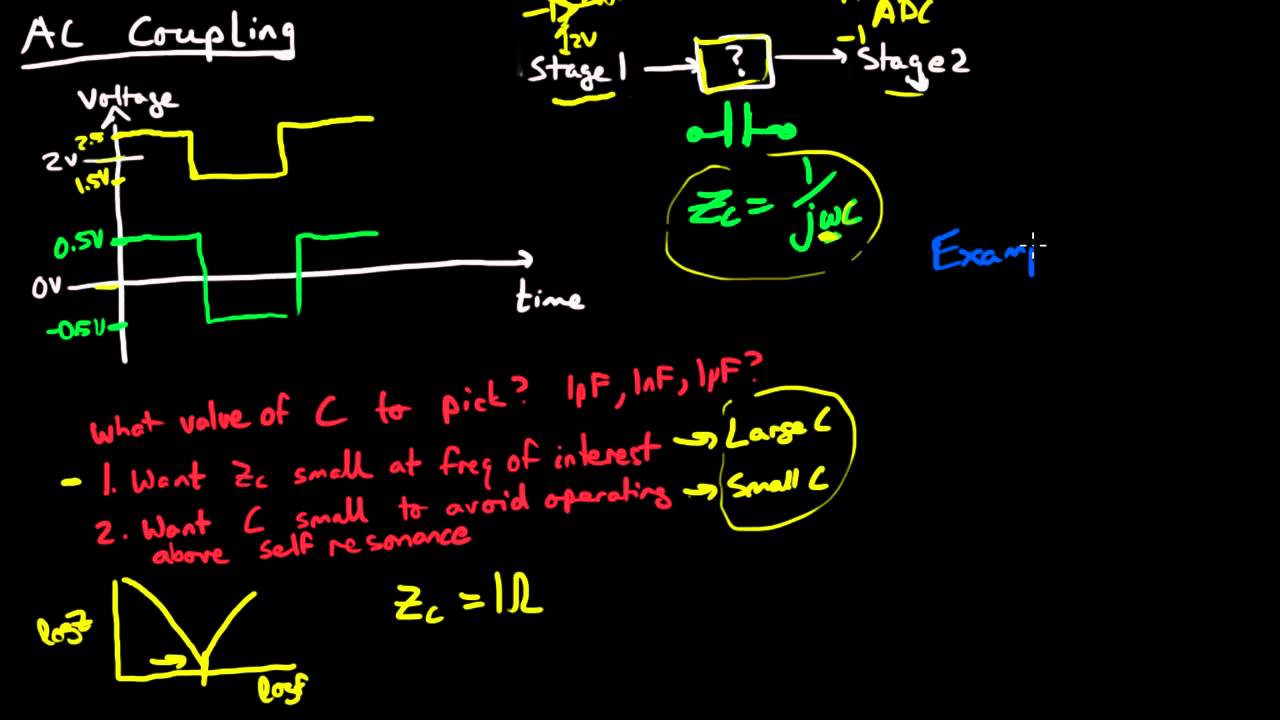 AC Coupling
2V
Stage 1
?
ADC
-1
Stage 2
Voltage
2.5
2V
1.5V
0.5V
0V
-0.5V
time
Zc = 1/jωc
Examp
What value of C to pick? 1pF, 1nF, 1μF?
- 1. Want Zc small at freq of interest → Large C
2. Want C small to avoid operating → Small C
above self resonance
log Z
log f
Zc = 1Ω